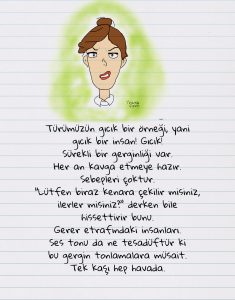 Türümüzün gıcık bir örneği, yani
gıcık bir insan! Gıcık!
Sürekli bir gerginliği var.
Her an kavga etmeye hazır.
Sebepleri çoktur.
"Lütfen biraz kenara çekilir misiniz,
ilerler misiniz?" derken bile
hissettirir bunu.
Gerer etrafındaki insanları.
Ses tonu da ne tesadüftür ki
bu gergin tonlamalara müsait.
Tek kaşı hep havada.